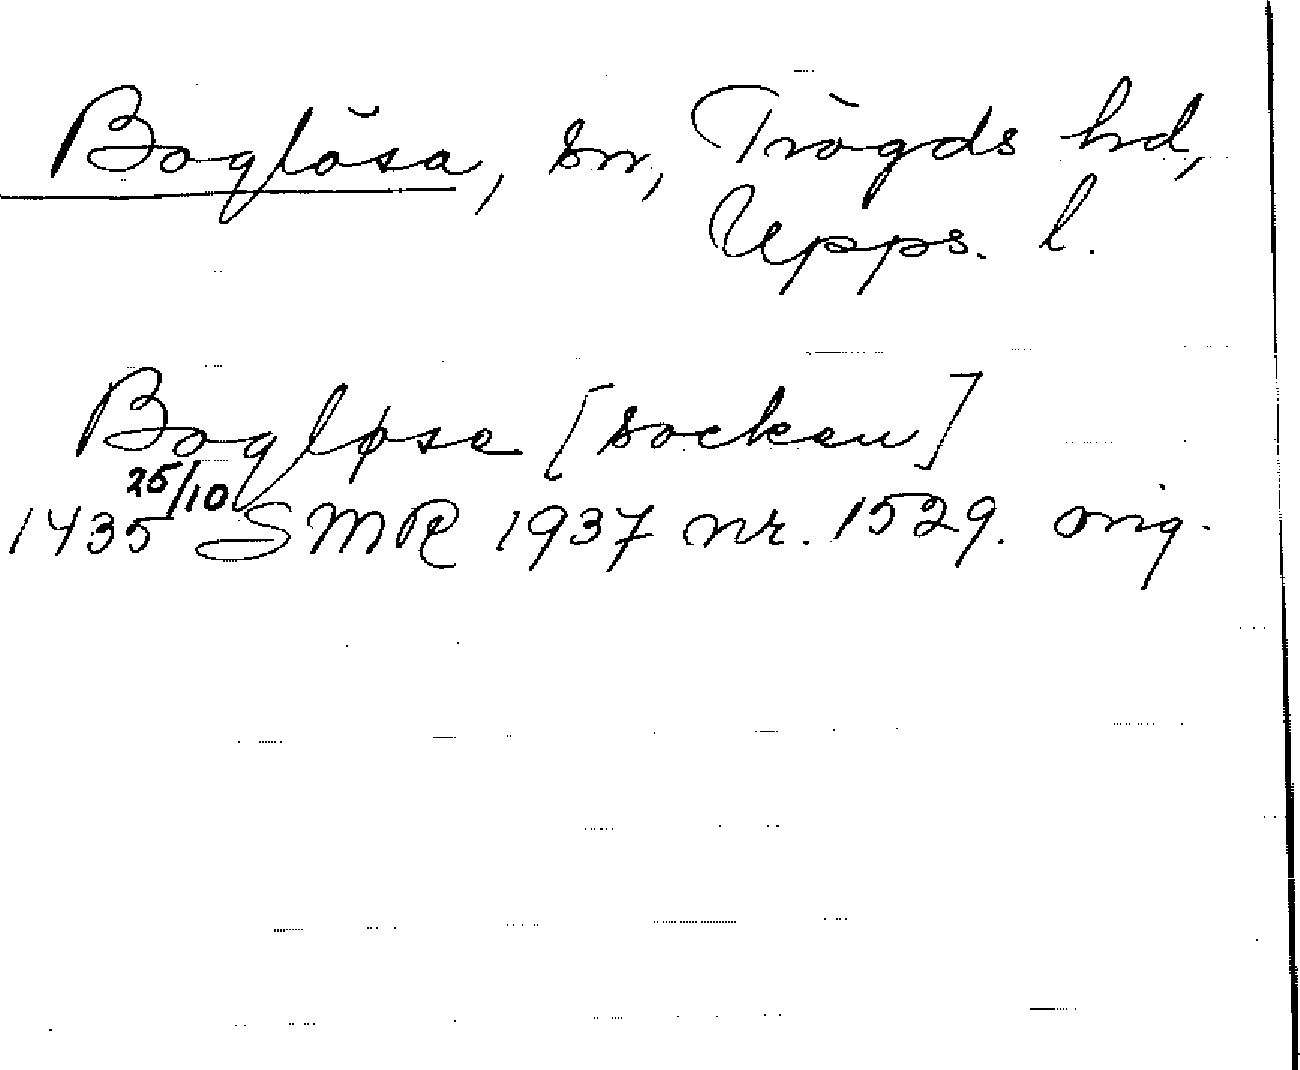 Boglösa, sn, Trögds hd,
Upps. l.
Bogløsa [socken]
1435 25/10 SMR 1937 nr. 1529. orig.